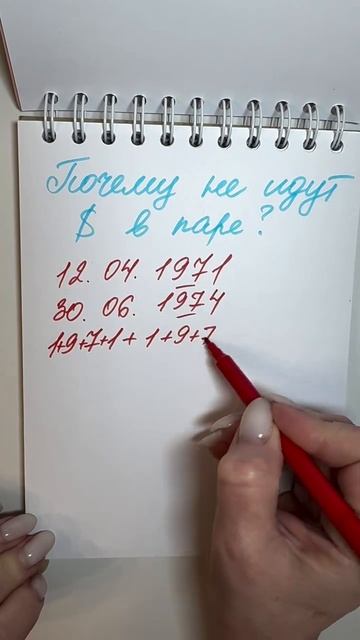 Почему не идут
$ в паре?
12. 04. 1971
30. 06. 1974
1+9+7+1+ 1+9+7